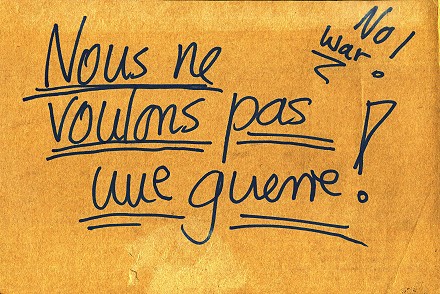 No!
war.
Nous ne
voulons pas
une guerre!